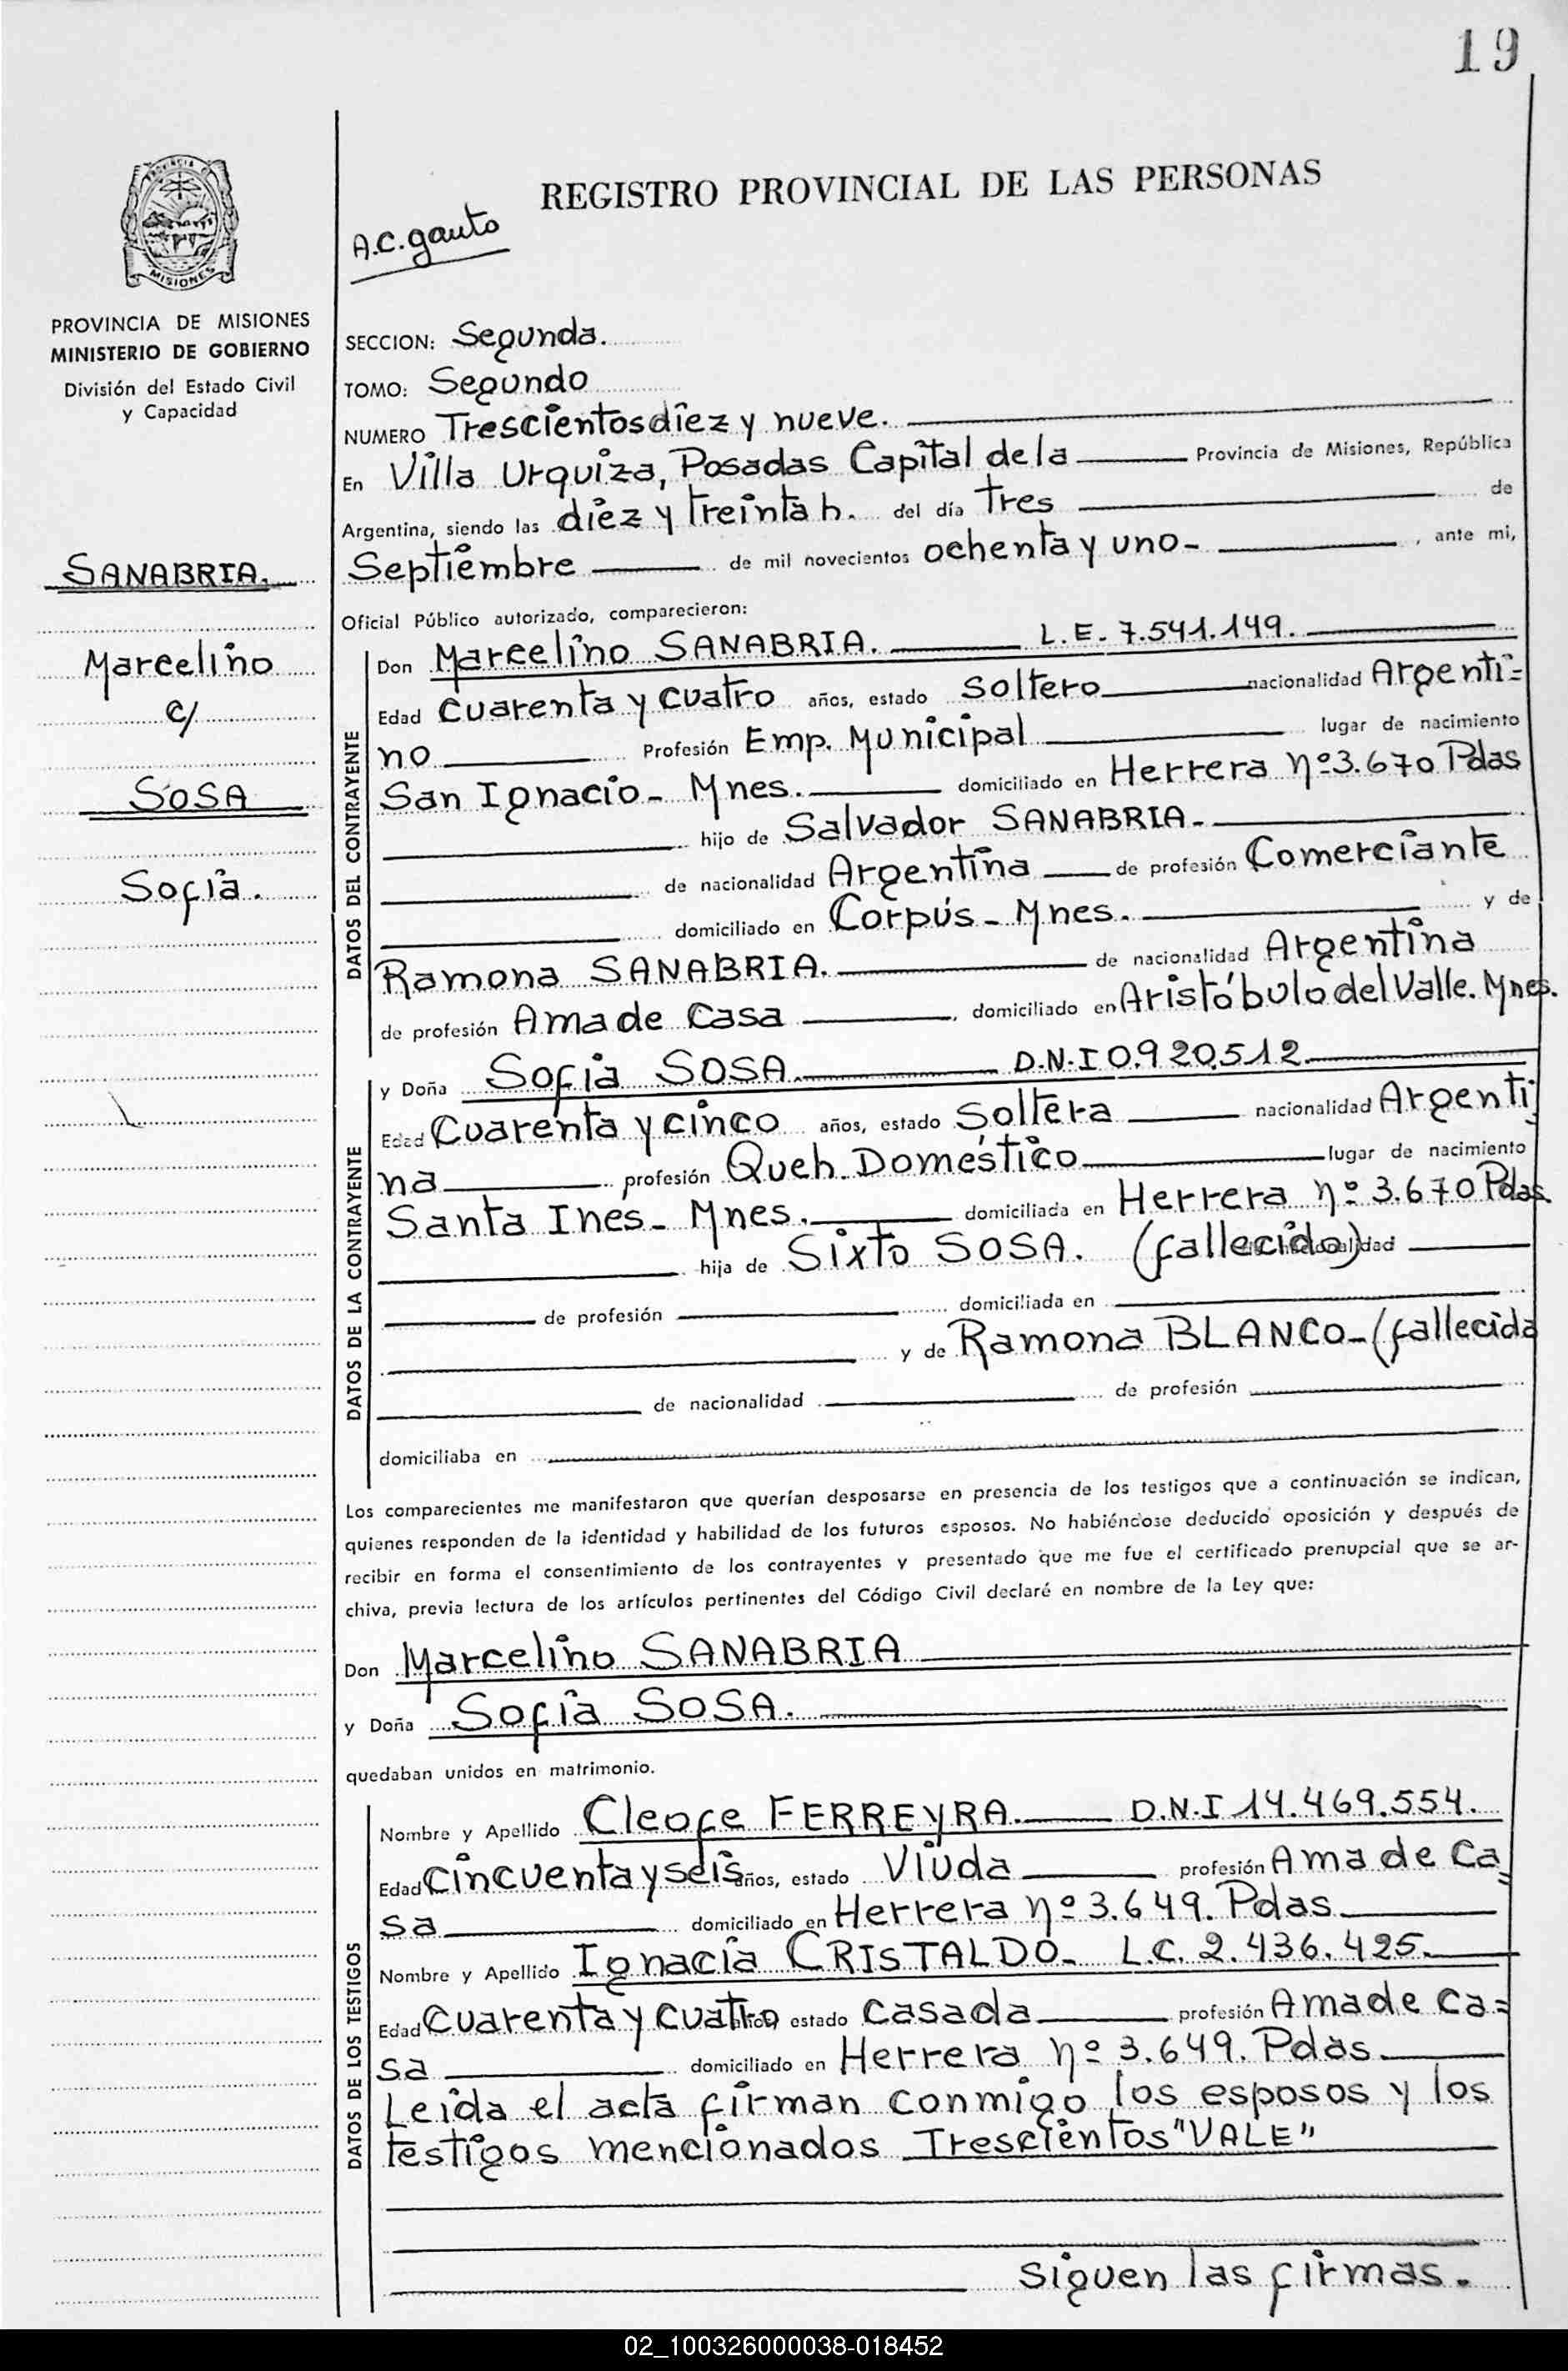 19
PROVINCIA
MISIONES
REGISTRO PROVINCIAL DE LAS PERSONAS
A.C. gauto
PROVINCIA DE MISIONES
MINISTERIO DE GOBIERNO
División del Estado Civil
y Capacidad
SECCION: Segunda.
TOMO: Segundo
NUMERO Trescientos diez y nueve.
En Villa Urquiza, Posadas Capital de la Provincia de Misiones, República
Argentina, siendo las diez y treinta h. del día tres de
Septiembre de mil novecientos ochenta y uno - , ante mi,
Oficial Público autorizado, comparecieron:
SANABRIA.
Marcelino
c/
SOSA
Sofia.
DATOS DEL CONTRAYENTE
Don Marcelino SANABRIA. L.E. 7.541.149.
Edad Cuarenta y cuatro años, estado Soltero nacionalidad Argenti=
no Profesión Emp. Municipal lugar de nacimiento
San Ignacio - Mnes. domiciliado en Herrera nº 3.670 Pdas
hijo de Salvador SANABRIA -
de nacionalidad Argentina de profesión Comerciante
domiciliado en Corpus - Mnes. y de
Ramona SANABRIA. de nacionalidad Argentina
de profesión Ama de Casa , domiciliado en Aristóbulo del Valle. Mnes.
DATOS DE LA CONTRAYENTE
y Doña Sofia SOSA. D.N.I 0.920.512.
Edad Cuarenta y cinco años, estado Soltera nacionalidad Argenti
na profesión Queh. Doméstico lugar de nacimiento
Santa Ines - Mnes. domiciliada en Herrera nº 3.670 Pdas.
hija de Sixto SOSA. (fallecido) de nacionalidad
de profesión domiciliada en
y de Ramona BLANCO - (fallecida
de nacionalidad de profesión
domiciliaba en
Los comparecientes me manifestaron que querían desposarse en presencia de los testigos que a continuación se indican,
quienes responden de la identidad y habilidad de los futuros esposos. No habiéndose deducido oposición y después de
recibir en forma el consentimiento de los contrayentes y presentado que me fue el certificado prenupcial que se ar-
chiva, previa lectura de los artículos pertinentes del Código Civil declaré en nombre de la Ley que:
Don Marcelino SANABRIA
y Doña Sofia SOSA.
quedaban unidos en matrimonio.
DATOS DE LOS TESTIGOS
Nombre y Apellido Cleofe FERREYRA. D.N.I 14.469.554.
Edad Cincuenta y seis años, estado Viuda profesión Ama de Ca=
sa domiciliado en Herrera nº 3.649. Pdas.
Nombre y Apellido Ignacia CRISTALDO - L.C. 2.436.425.
Edad Cuarenta y cuatro años, estado Casada profesión Ama de Ca=
sa domiciliado en Herrera nº 3.649. Pdas.
Leida el acta firman conmigo los esposos y los
testigos mencionados Trescientos "VALE"
Siguen las firmas.
02_100326000038-018452